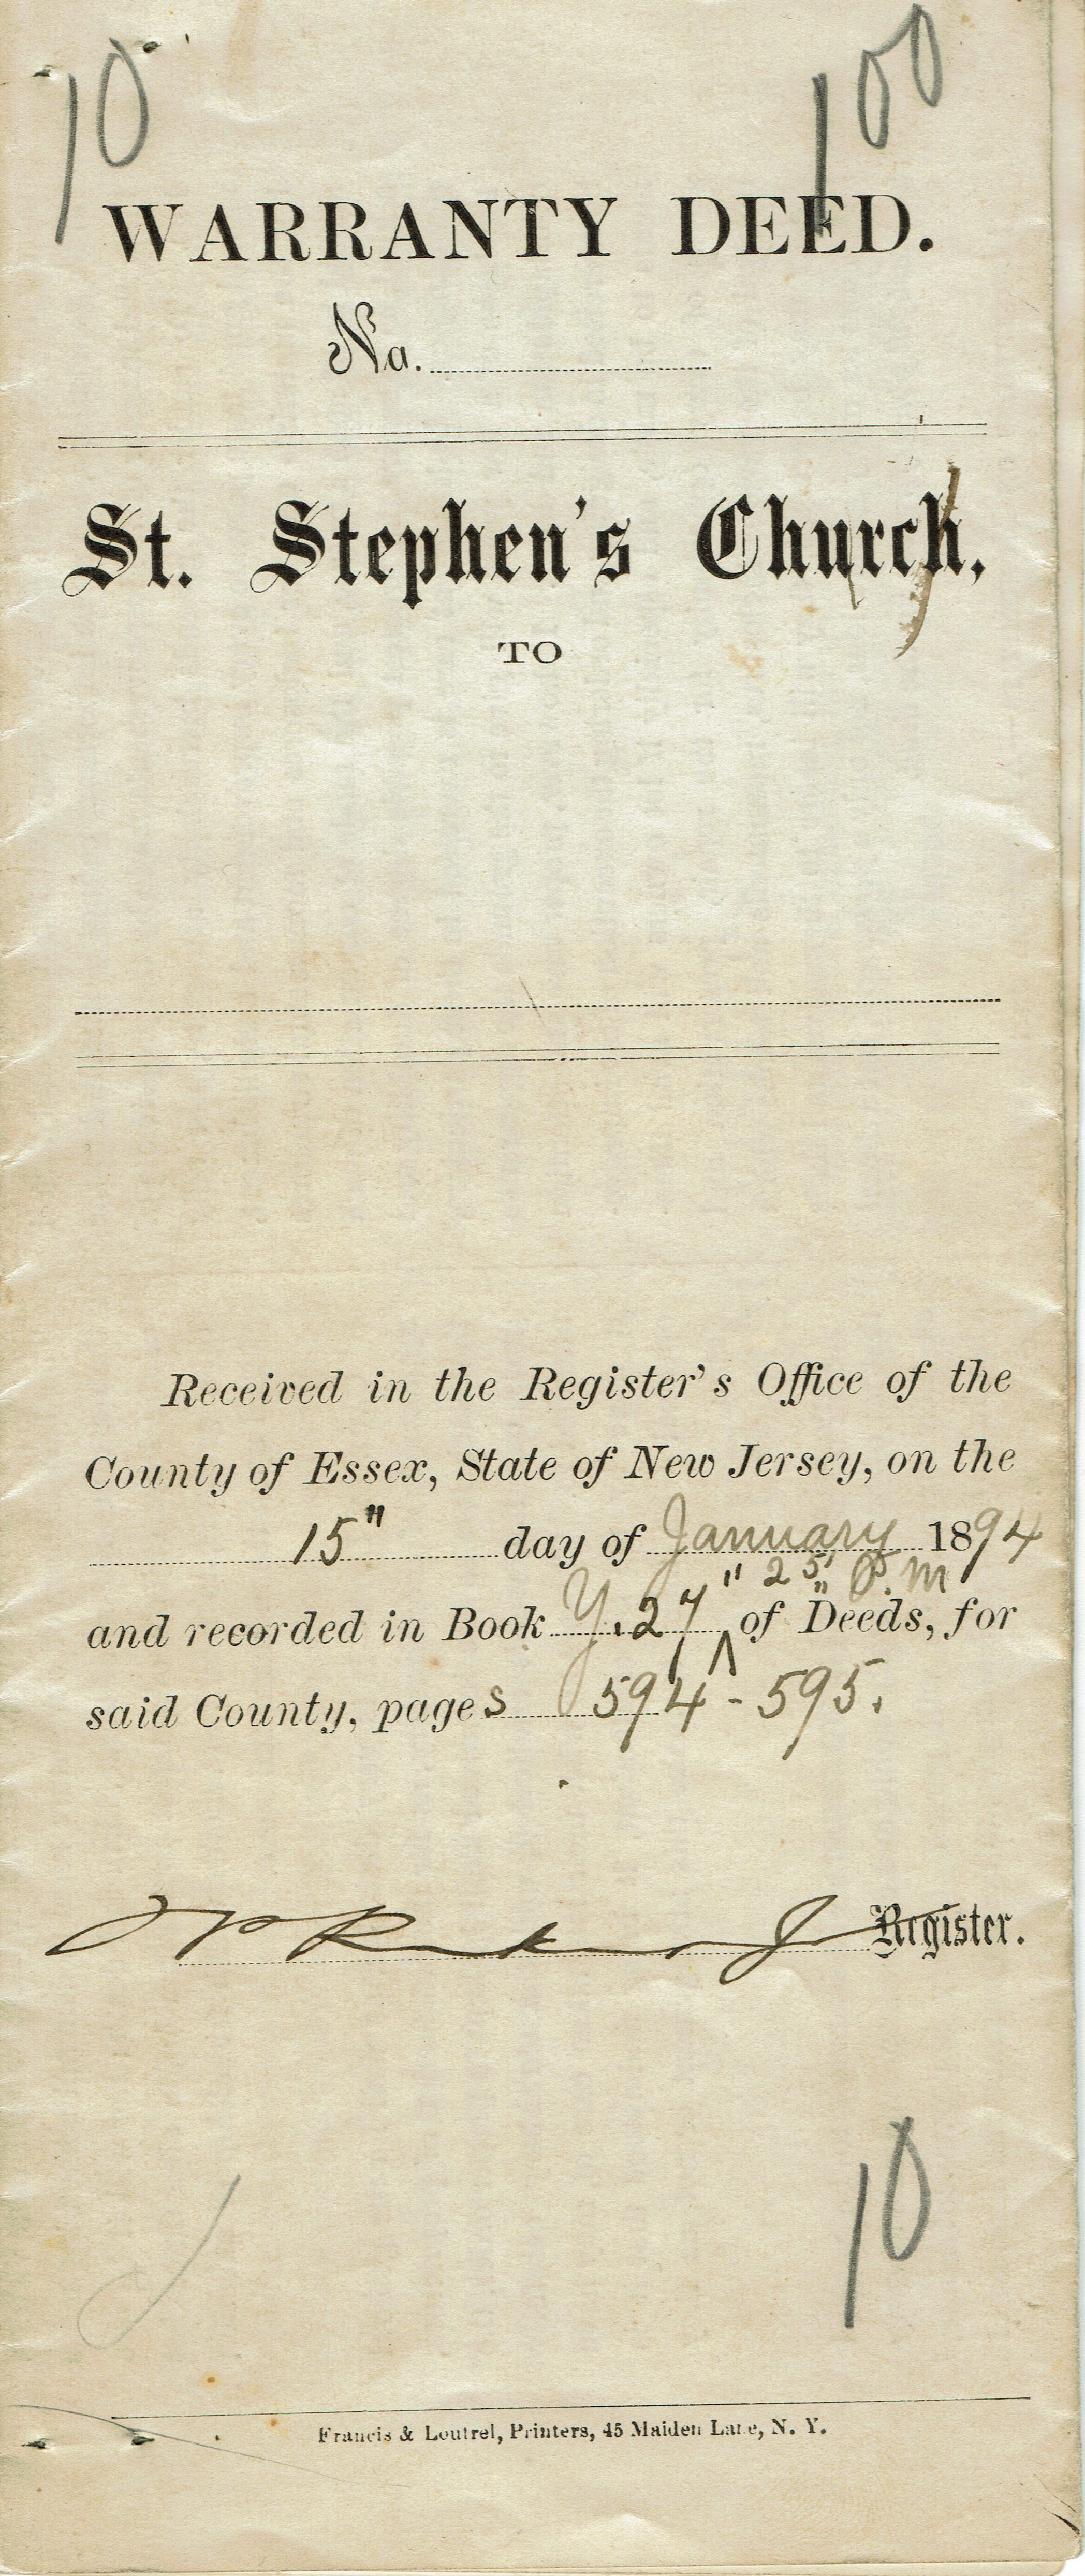 10 100
WARRANTY DEED.
No.
St. Stephen's Church,
TO
Received in the Register's Office of the
County of Essex, State of New Jersey, on the
15" day of January 1894
" 25' P.M
and recorded in Book Y.27 of Deeds, for
said County, pages 594-595.
Register.
10
Francis & Loutrel, Printers, 45 Maiden Lane, N. Y.